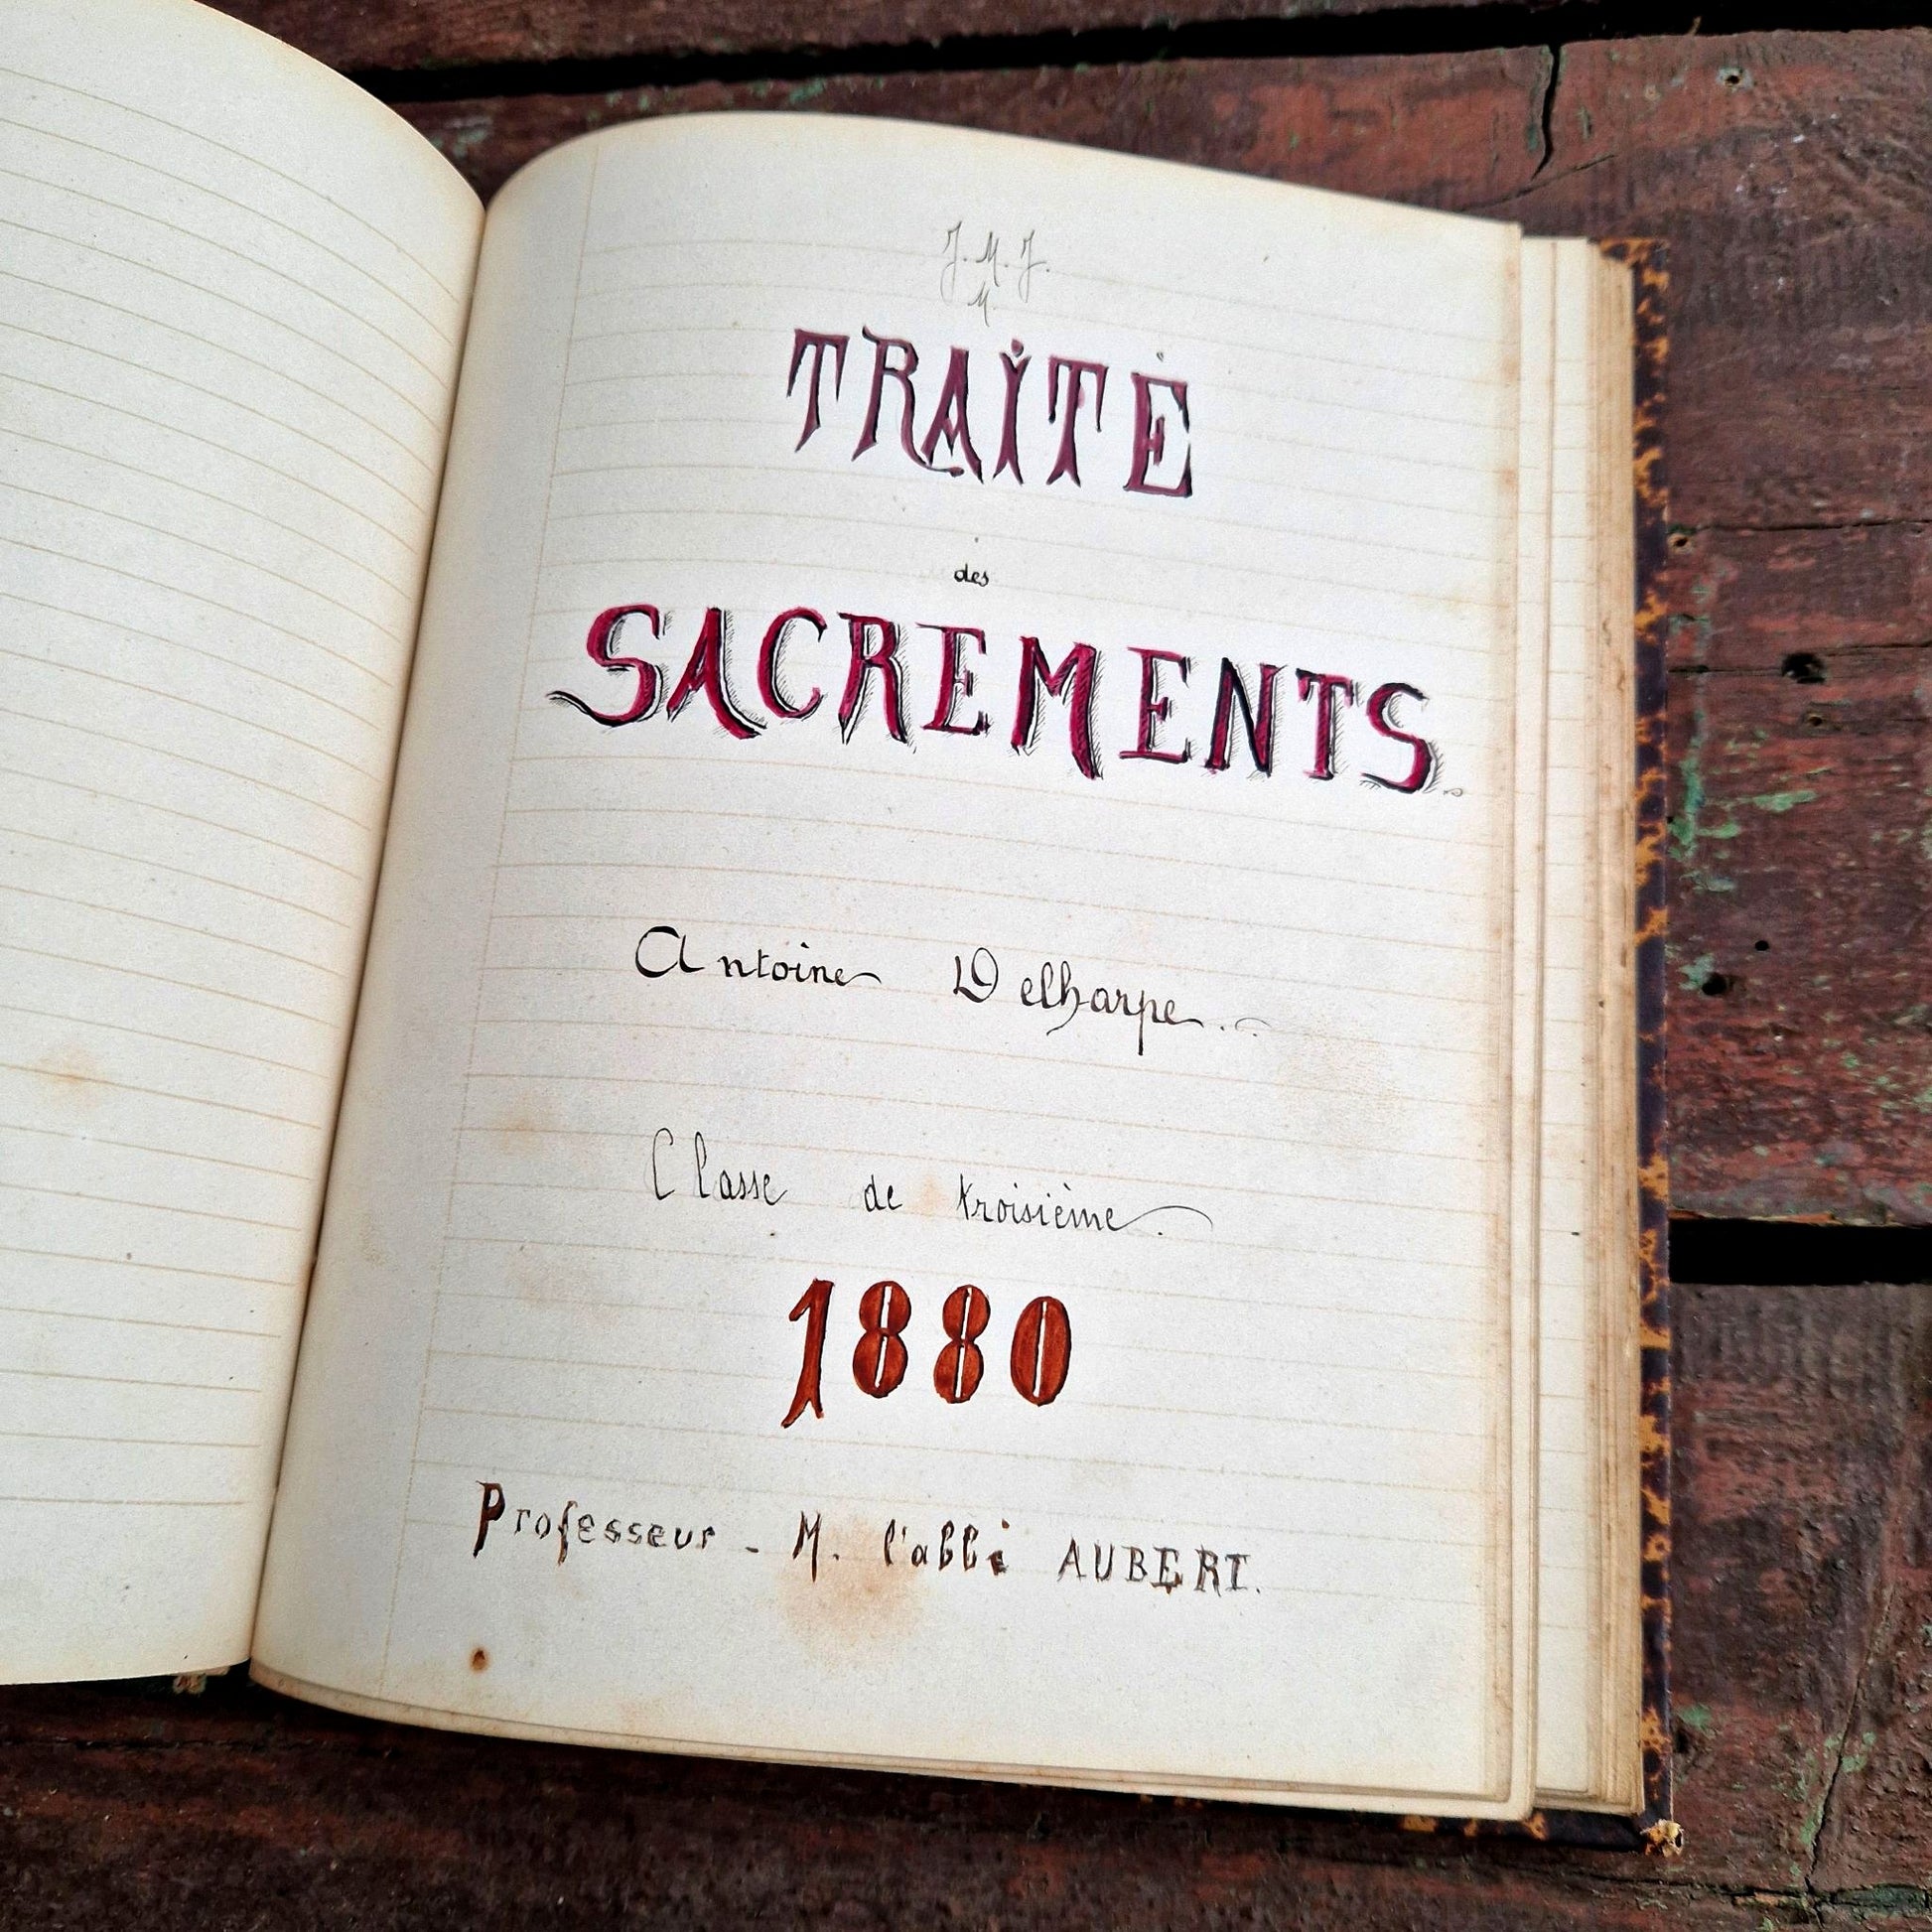 J. M. J.
M.
TRAITÉ
des
SACREMENTS.
Antoine Delharpe..
Classe de troisième.
1880
Professeur - M. l'abbé AUBERT.